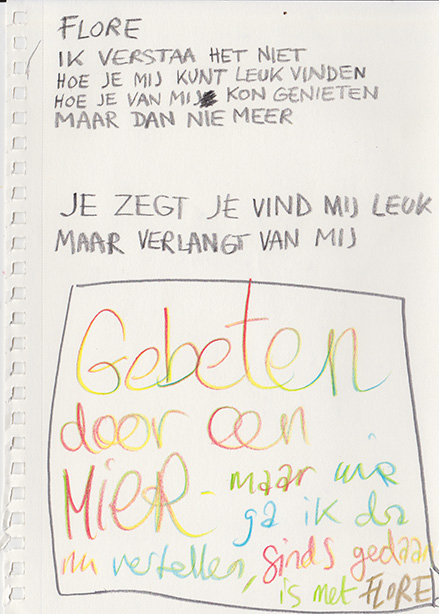 FLORE
IK VERSTAA HET NIET
HOE JE MIJ KUNT LEUK VINDEN
HOE JE VAN MIJ KON GENIETEN
MAAR DAN NIE MEER
JE ZEGT JE VIND MIJ LEUK
MAAR VERLANGT VAN MIJ
Gebeten
door een
MIER - maar wie
ga ik da
nu vertellen, sinds gedaan
is met FLORE